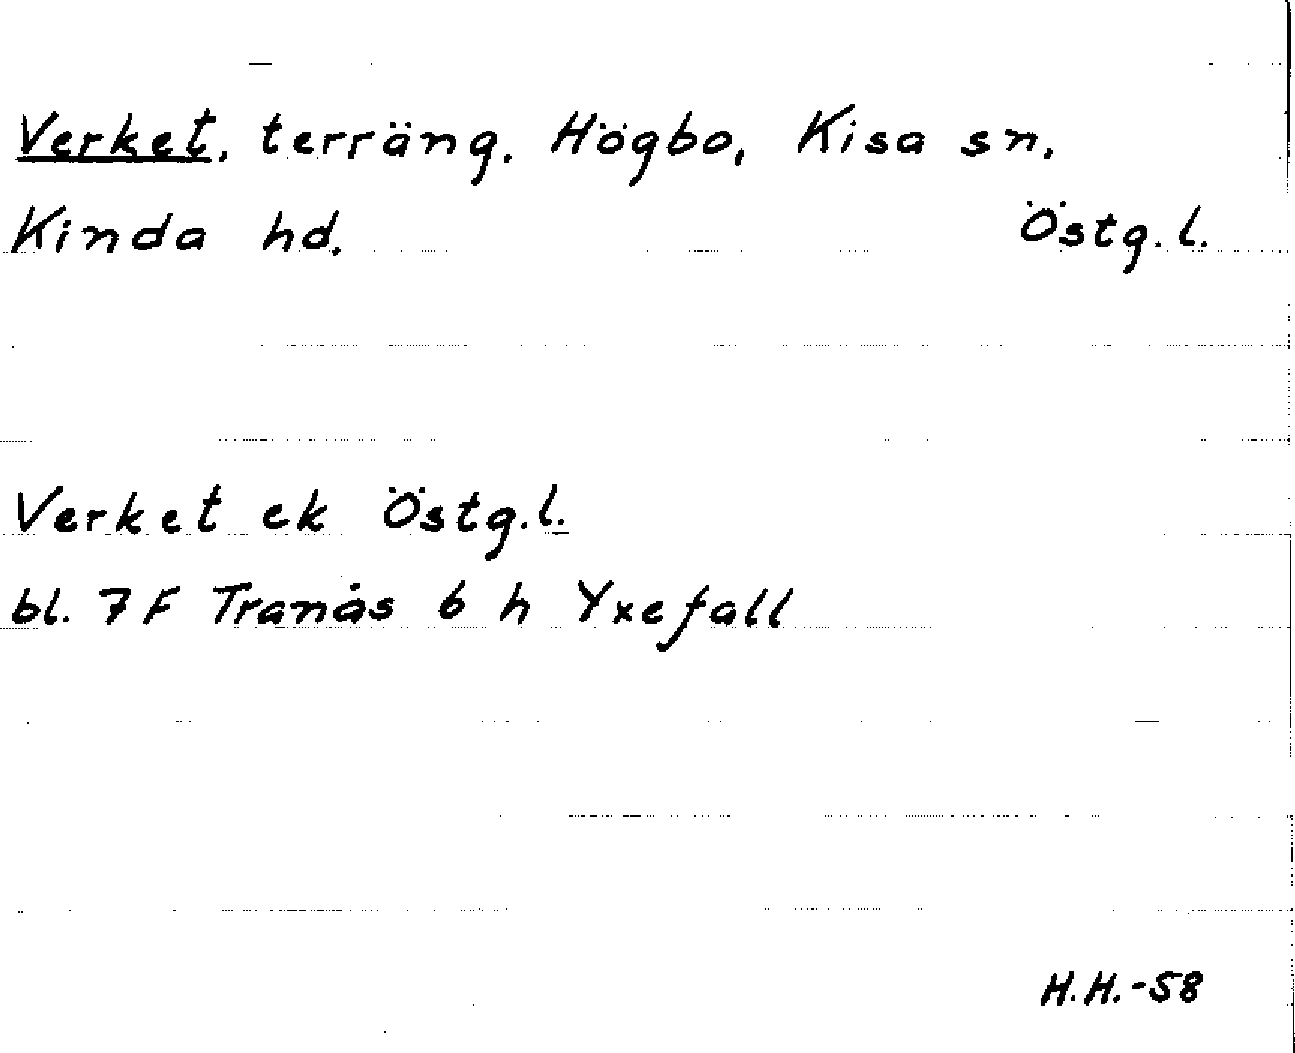 Verket, terräng. Högbo, Kisa sn.
Kinda hd. Östg.l.
Verket ek Östg.l.
bl. 7F Tranås 6 h Yxefall
H.H.-58